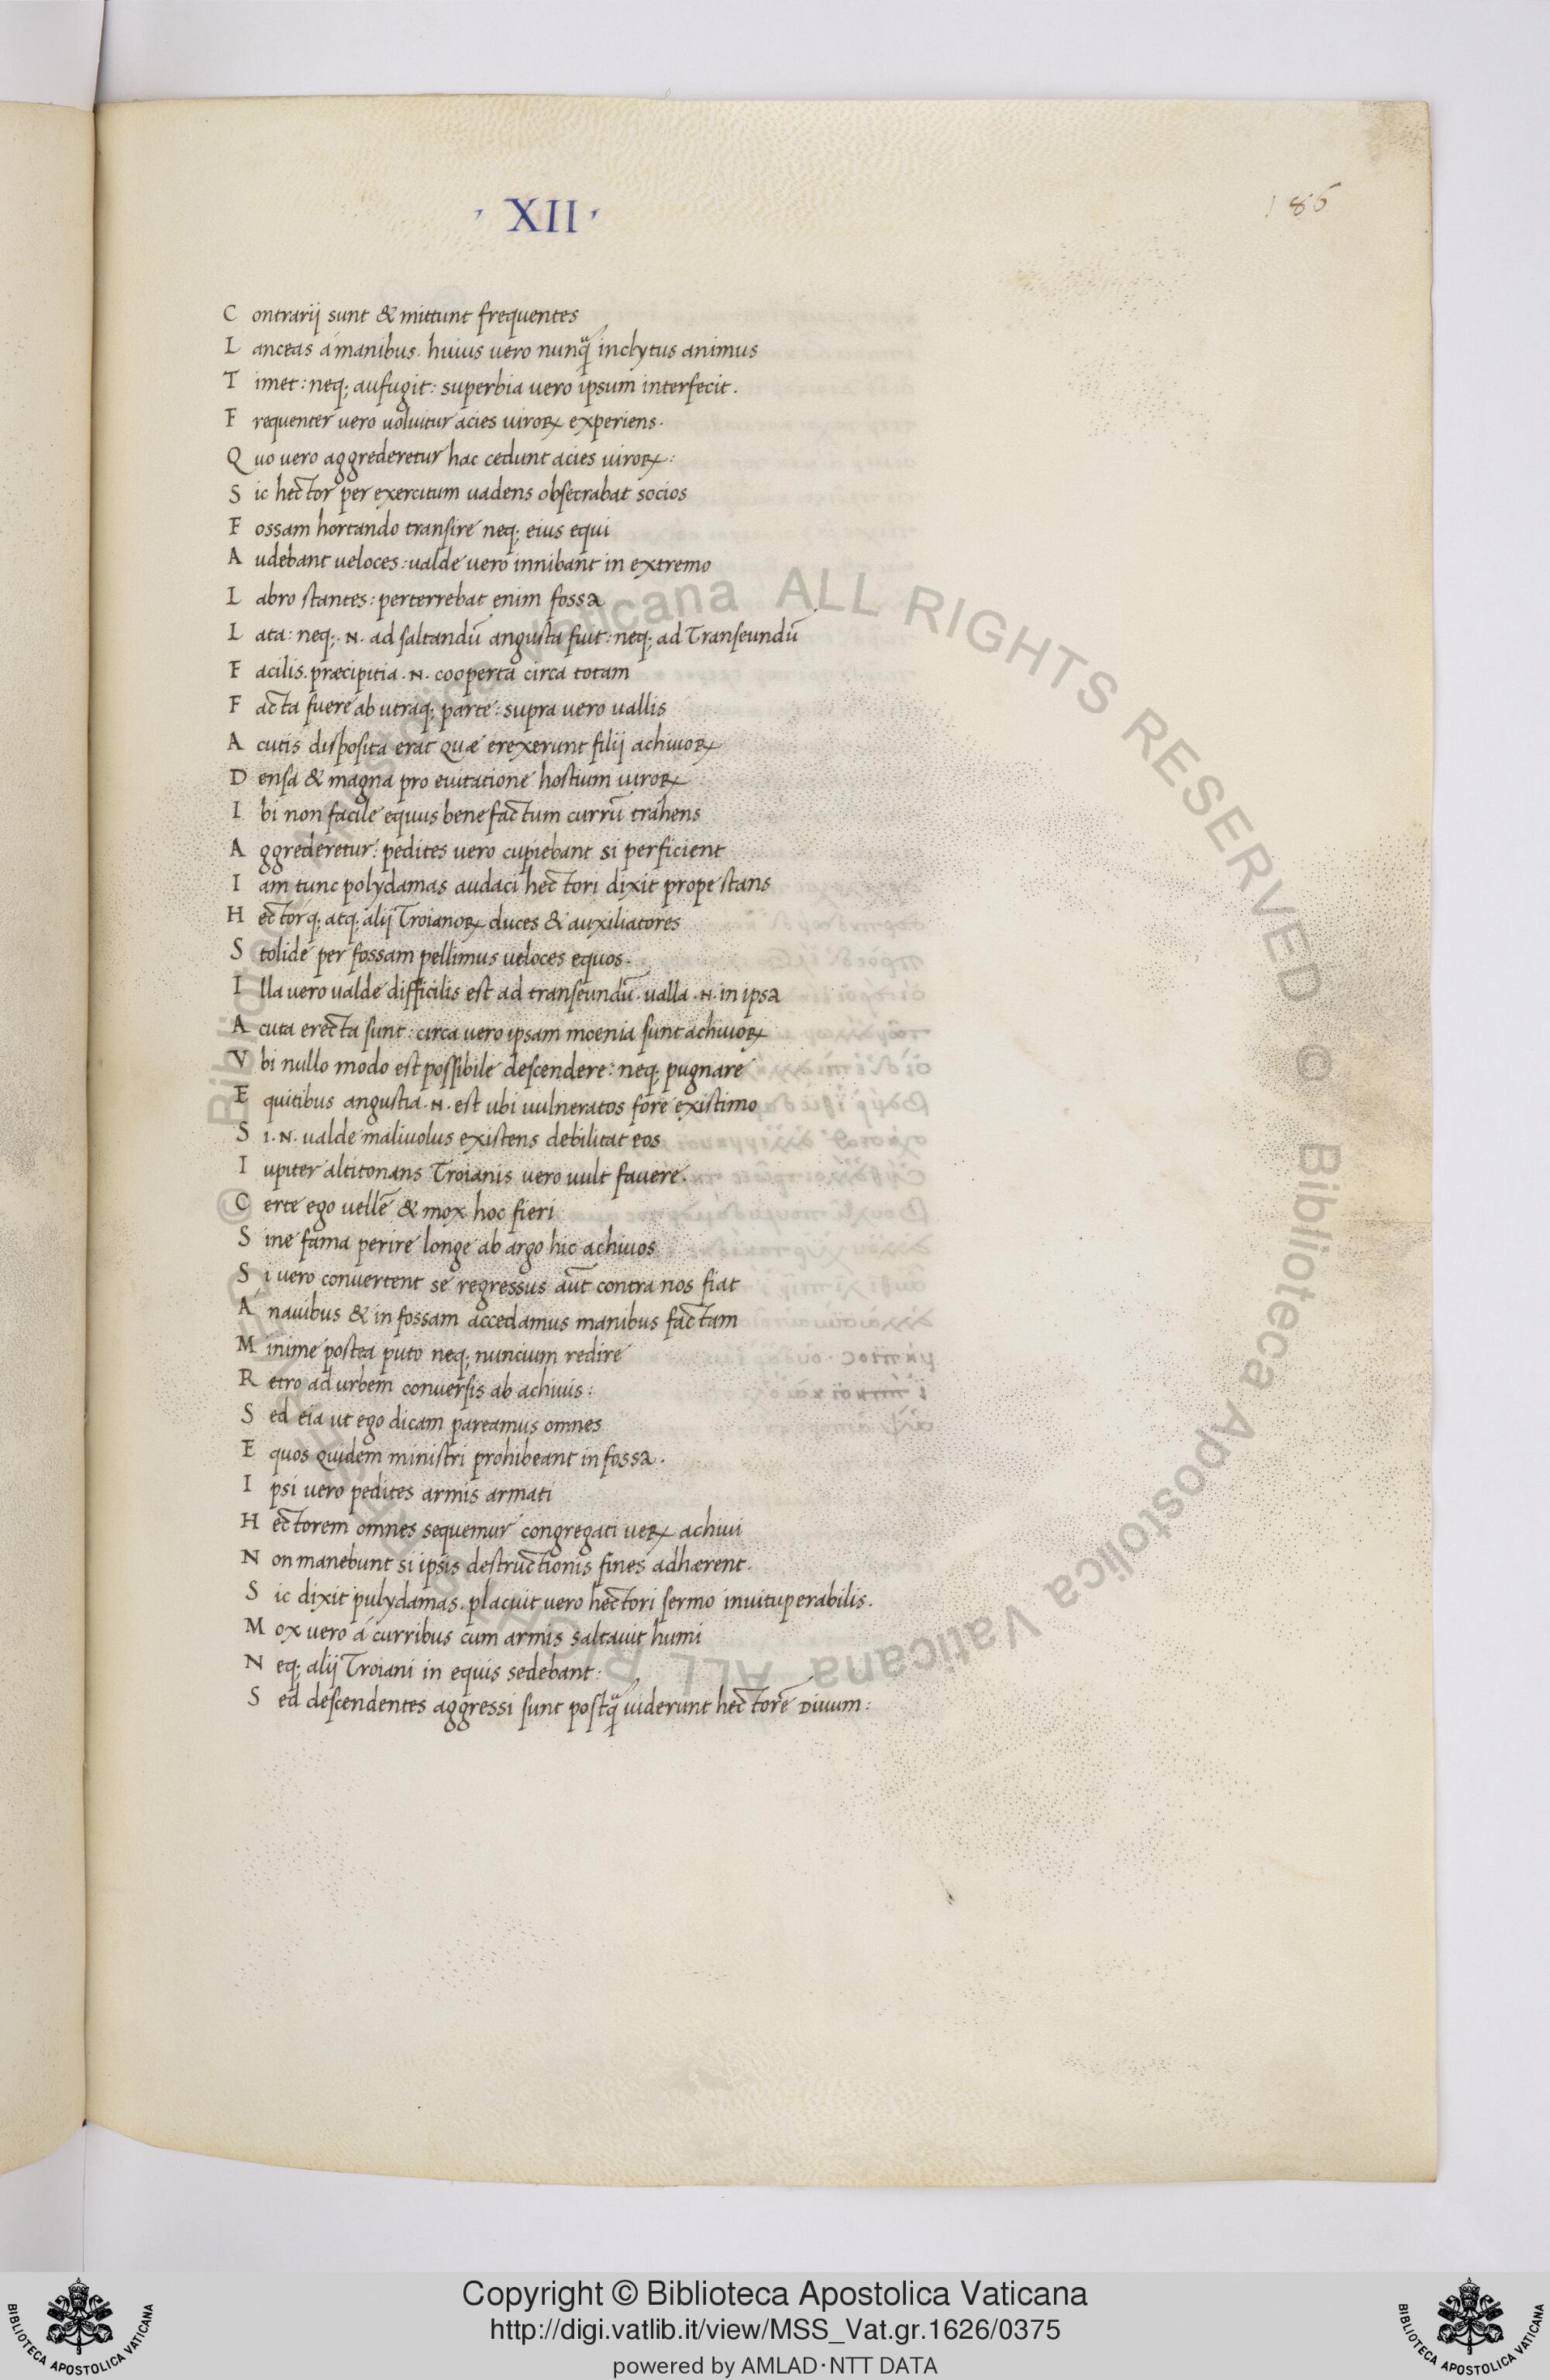 · XII ·
186
Contrarij sunt & mittunt frequentes
Lanceas á manibus. huius uero nunq̃ inclytus animus
Timet: neq; aufugit: superbia uero ipsum interfecit.
Frequenter uero uoluitur acies uiroꝝ experiens.
Quo uero aggrederetur hac cedunt acies uiroꝝ:
Sic hector per exercitum uadens obsecrabat socios
Fossam hortando transire neq; eius equi
Audebant ueloces: ualde uero innibant in extremo
Labro stantes: perterrebat enim fossa
Lata: neq; .N. ad saltandū angusta fuit: neq; ad Transeundū
Facilis. præcipitia .N. cooperta circa totam
Facta fuere ab utraq; parte: supra uero uallis
Acutis disposita erat quæ erexerunt filij achiuoꝝ
Densa & magna pro euitatione hostium uiroꝝ
Ibi non facile equus bene factum currū trahens
Aggrederetur: pedites uero cupiebant si perficient
Iam tunc polydamas audaci hectori dixit prope stans
Hectorq; atq; alij Troianoꝝ duces & auxiliatores
Stolide per fossam pellimus ueloces equos.
Illa uero ualde difficilis est ad transeundū. ualla .N. in ipsa
Acuta erecta sunt: circa uero ipsam moenia sunt achiuoꝝ
Vbi nullo modo est possibile descendere: neq; pugnare
Equitibus angustia .N. est ubi uulneratos fore existimo
Si .N. ualde maliuolus existens debilitat eos
Iupiter altitonans Troianis uero uult fauere.
Certe ego uellē & mox hoc fieri
Sine fama perire longe ab argo hic achiuos
Si uero conuertent se regressus aūt contra nos fiat
Á nauibus & in fossam accedamus manibus factam
Minime postea puto neq; nuncium redire
Retro ad urbem conuersis ab achiuis:
Sed eia ut ego dicam pareamus omnes
Equos quidem ministri prohibeant in fossa.
Ipsi uero pedites armis armati
Hectorem omnes sequemur congregati ueꝝ achiui
Non manebunt si ipsis destructionis fines adhærent.
Sic dixit pulydamas. placuit uero hectori sermo inuituperabilis.
Mox uero á curribus cum armis saltauit humi
Neq; alij Troiani in equis sedebant:
Sed descendentes aggressi sunt postq̃ uiderunt hectorē Diuum:
© Biblioteca Apostolica Vaticana ALL RIGHTS RESERVED © Biblioteca Apostolica Vaticana ALL RIGHTS RESERVED
Copyright © Biblioteca Apostolica Vaticana
http://digi.vatlib.it/view/MSS_Vat.gr.1626/0375
powered by AMLAD·NTT DATA
BIBLIOTECA APOSTOLICA VATICANA
BIBLIOTECA APOSTOLICA VATICANA